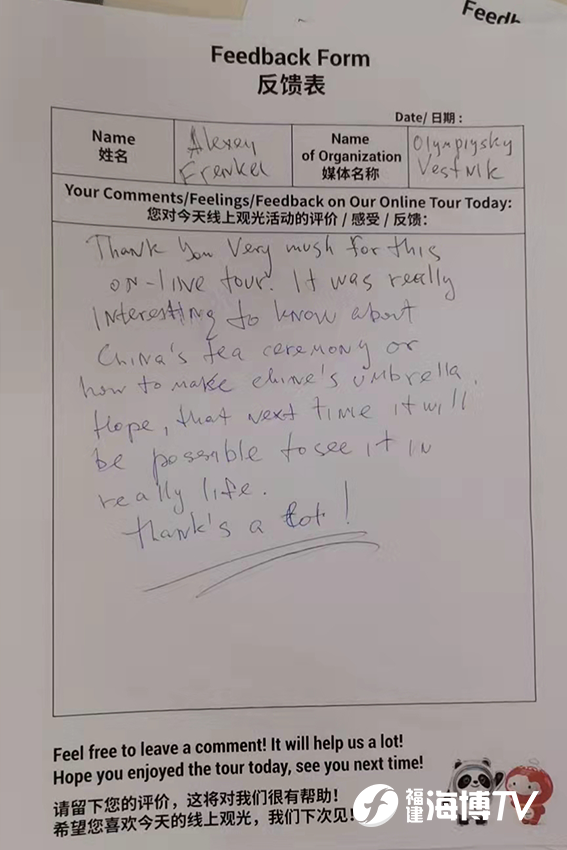 Feedb
Feedback Form
反馈表
Date/ 日期：
Name
姓名
Alexey
Frenkel
Name
of Organization
媒体名称
Olympiysky
Vestnik
Your Comments/Feelings/Feedback on Our Online Tour Today:
您对今天线上观光活动的评价 / 感受 / 反馈：
Thank you very mush for this
on-line tour. It was really
interesting to know about
China's tea ceremony or
how to make chine's umbrella.
Hope, that next time it will
be possible to see it in
really life.
Thank's a lot!
Feel free to leave a comment! It will help us a lot!
Hope you enjoyed the tour today, see you next time!
请留下您的评价，这将对我们很有帮助！
希望您喜欢今天的线上观光，我们下次见！
福建 海博TV